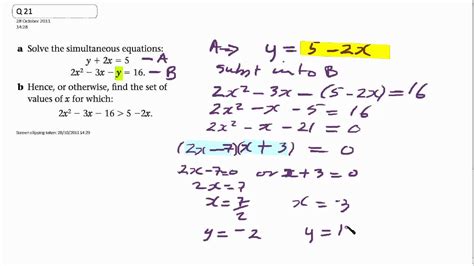 Q 21
28 October 2011
14:28
a Solve the simultaneous equations:
y + 2x = 5 — A
2x² − 3x − y = 16. — B
b Hence, or otherwise, find the set of
values of x for which:
2x² − 3x − 16 > 5 − 2x.
Screen clipping taken: 28/10/2011 14:29
A→ y = 5 − 2x
subst into B
2x² − 3x − (5 − 2x) = 16
2x² − x − 5 = 16
2x² − x − 21 = 0
(2x − 7)(x + 3) = 0
2x − 7 = 0 or x + 3 = 0
2x = 7
x = 7/2 x = −3
y = −2 y = 1